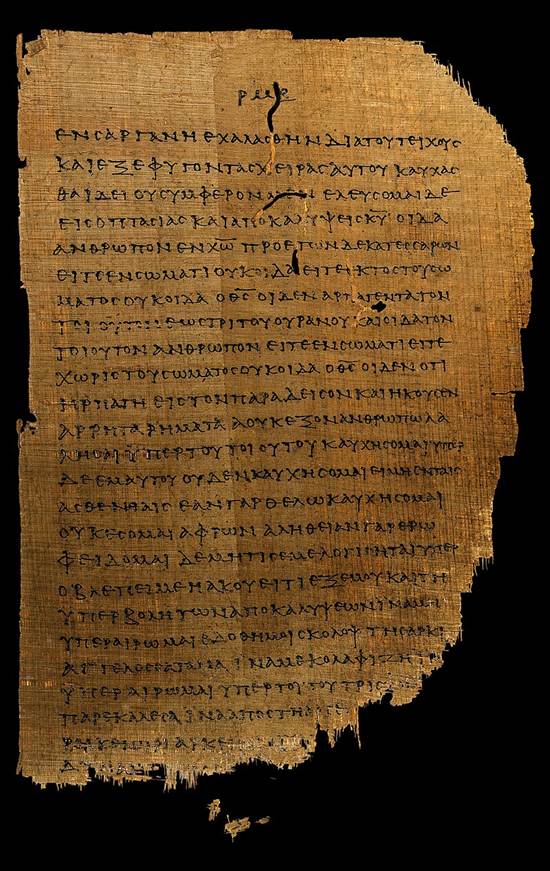 ρμε
ΕΝϹΑΡΓΑΝΗΕΧΑΛΑϹΘΗΝΔΙΑΤΟΥΤΕΙΧΟΥϹ
ΚΑΙΕΞΕΦΥΓΟΝΤΑϹΧΕΙΡΑϹΑΥΤΟΥΚΑΥΧΑϹ
ΘΑΙΔΕΙΟΥϹΥΜΦΕΡΟΝΜΕΝΕΛΕΥϹΟΜΑΙΔΕ
ΕΙϹΟΠΤΑϹΙΑϹΚΑΙΑΠΟΚΑΛΥΨΕΙϹΚ̅Υ̅ΟΙΔΑ
ΑΝΘΡΩΠΟΝΕΝΧ̅Ω̅ΠΡΟΕΤΩΝΔΕΚΑΤΕϹϹΑΡΩΝ
ΕΙΤΕΕΝϹΩΜΑΤΙΟΥΚΟΙΔΑΕΙΤΕΕΚΤΟϹΤΟΥϹΩ
ΜΑΤΟϹΟΥΚΟΙΔΑΟΘ̅Ϲ̅ΟΙΔΕΝΑΡΠΑΓΕΝΤΑΤΟΝ
ΕΩϹΤΡΙΤΟΥΟΥΡΑΝΟΥΚΑΙΟΙΔΑΤΟΝ
ΤΟΙΟΥΤΟΝΑΝΘΡΩΠΟΝΕΙΤΕΕΝϹΩΜΑΤΙΕΙΤΕ
ΧΩΡΙϹΤΟΥϹΩΜΑΤΟϹΟΥΚΟΙΔΑΟΘ̅Ϲ̅ΟΙΔΕΝΟΤΙ
ΗΡΠΑΓΗΕΙϹΤΟΝΠΑΡΑΔΕΙϹΟΝΚΑΙΗΚΟΥϹΕΝ
ΑΡΡΗΤΑΡΗΜΑΤΑΑΟΥΚΕΞΟΝΑΝΘΡΩΠΩΛΑ
ΛΗϹΑΙΫΠΕΡΤΟΥΤΟΙΟΥΤΟΥΚΑΥΧΗϹΟΜΑΙΥΠΕΡ
ΔΕΕΜΑΥΤΟΥΟΥΔΕΝΚΑΥΧΗϹΟΜΑΙΕΙΜΗΕΝΤΑΙϹ
ΑϹΘΕΝΕΙΑΙϹΕΑΝΓΑΡΘΕΛΩΚΑΥΧΗϹΟΜΑΙ
ΟΥΚΕϹΟΜΑΙΑΦΡΩΝΑΛΗΘΕΙΑΝΓΑΡΕΡΩ
ΦΕΙΔΟΜΑΙΔΕΜΗΤΙϹΕΜΕΛΟΓΙϹΗΤΑΙΥΠΕΡ
ΟΒΛΕΠΕΙΜΕΗΑΚΟΥΕΙΤΙΕΞΕΜΟΥΚΑΙΤΗ
ΫΠΕΡΒΟΛΗΤΩΝΑΠΟΚΑΛΥΨΕΩΝΪΝΑΜΗ
ΥΠΕΡΑΙΡΩΜΑΙΕΔΟΘΗΜΟΙϹΚΟΛΟΨΤΗϹΑΡΚΙ
ΑΓΓΕΛΟϹϹΑΤΑΝΑΪΝΑΜΕΚΟΛΑΦΙΖΗ
ΫΠΕΡΑΙΡΩΜΑΙΥΠΕΡΤΟΥΤΟΥΤΡΙϹ
ΠΑΡΕΚΑΛΕϹΑΪΝΑΑΠΟϹΤΗ